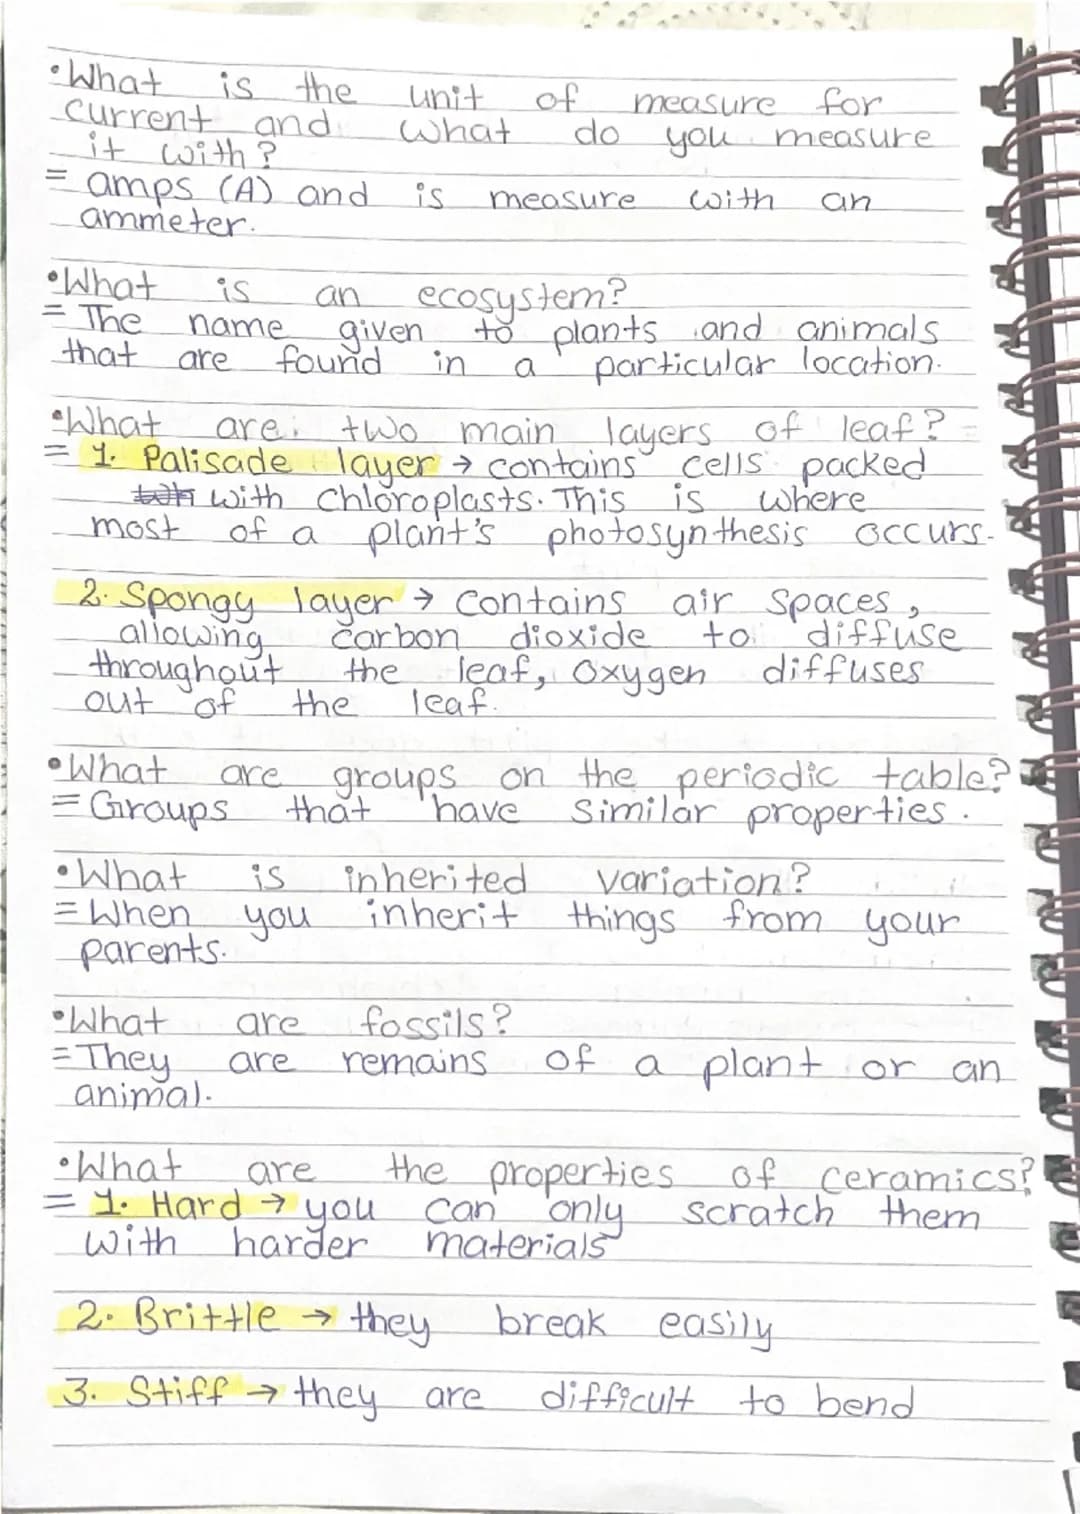 •What is the unit of measure for
current and what do you measure
it with?
= amps (A) and is measure with an
ammeter.
•What is an ecosystem?
= The name given to plants and animals
that are found in a particular location.
•What are two main layers of leaf?
= 1. Palisade layer → contains cells packed
with chloroplasts. This is where
most of a plant's photosynthesis occurs.
2. Spongy layer → contains air spaces,
allowing carbon dioxide to diffuse
throughout the leaf, oxygen diffuses
out of the leaf.
•What are groups on the periodic table?
= Groups that have similar properties.
•What is inherited variation?
= When you inherit things from your
parents.
•What are fossils?
= They are remains of a plant or an
animal.
•What are the properties of ceramics?
= 1. Hard → you can only scratch them
with harder materials
2. Brittle → they break easily
3. Stiff → they are difficult to bend